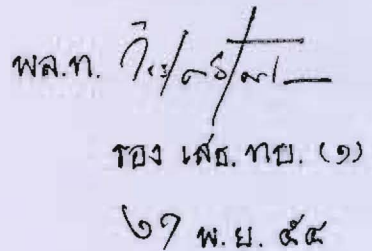 พล.ท.
รอง เสธ. ทบ. (๑)
๒๑ พ.ย. ๕๔